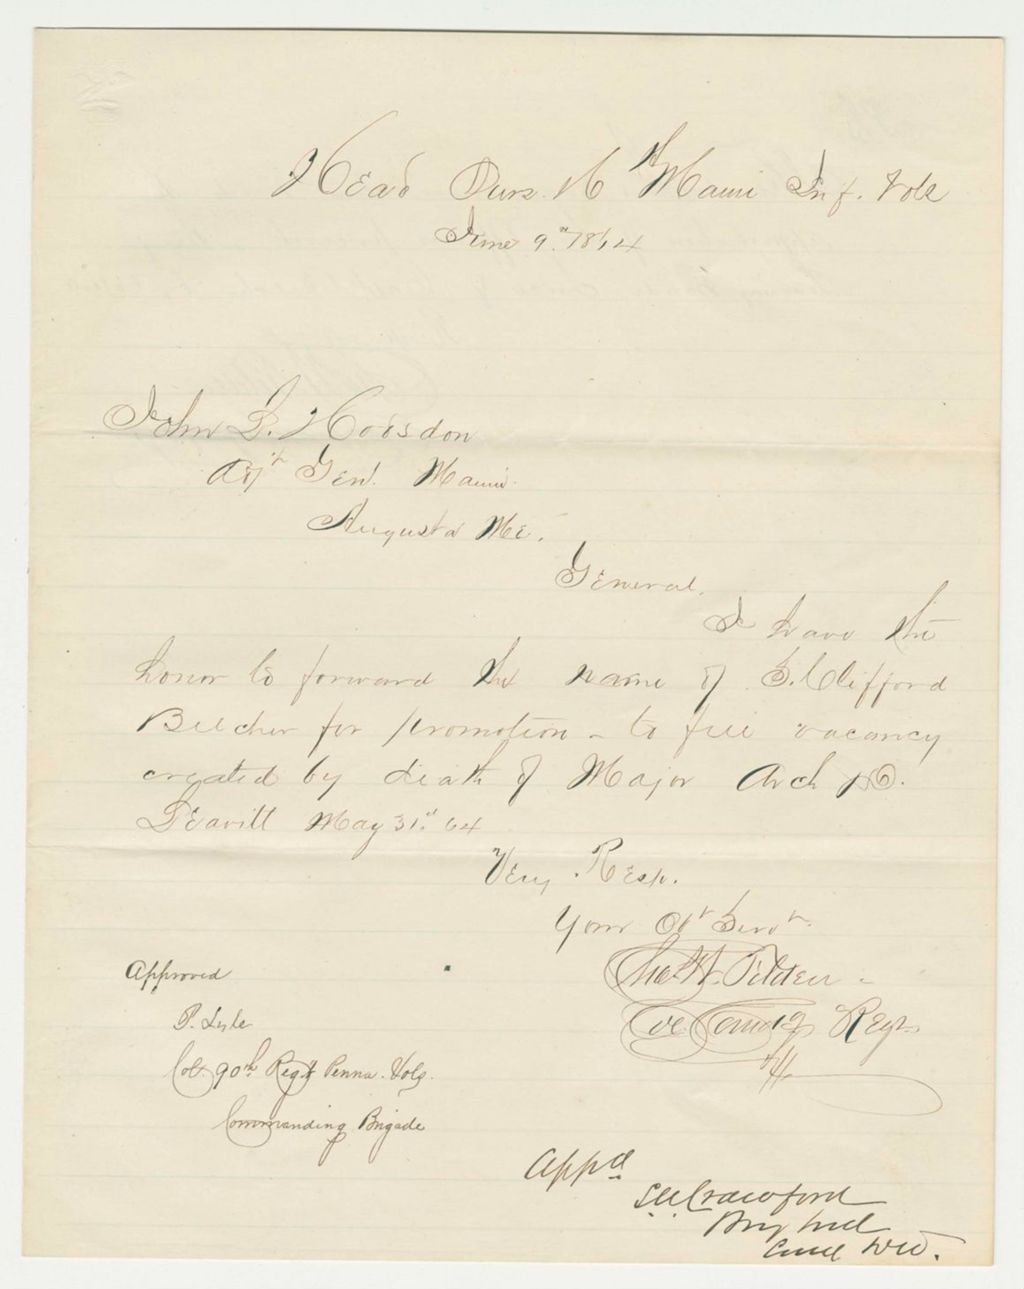 Head Qurs. 16th Maine Inf. Vols
June 9th 1864
John L. Hodsdon
Adjt Genl. Maine
Augusta Me.
General,
I have the
honor to forward the name of S. Clifford
Belcher for promotion - to fill vacancy
created by death of Major Arch D.
Leavitt May 31st 64
Very Resp.
Your Obt Servt
Chas. W. Tilden -
Col Comdg Regt
Approved
P. Lyle
Col. 90th Regt Penna. Vols.
Commanding Brigade
Appd
S.W. Crawford
Brig Genl
Comd Div.